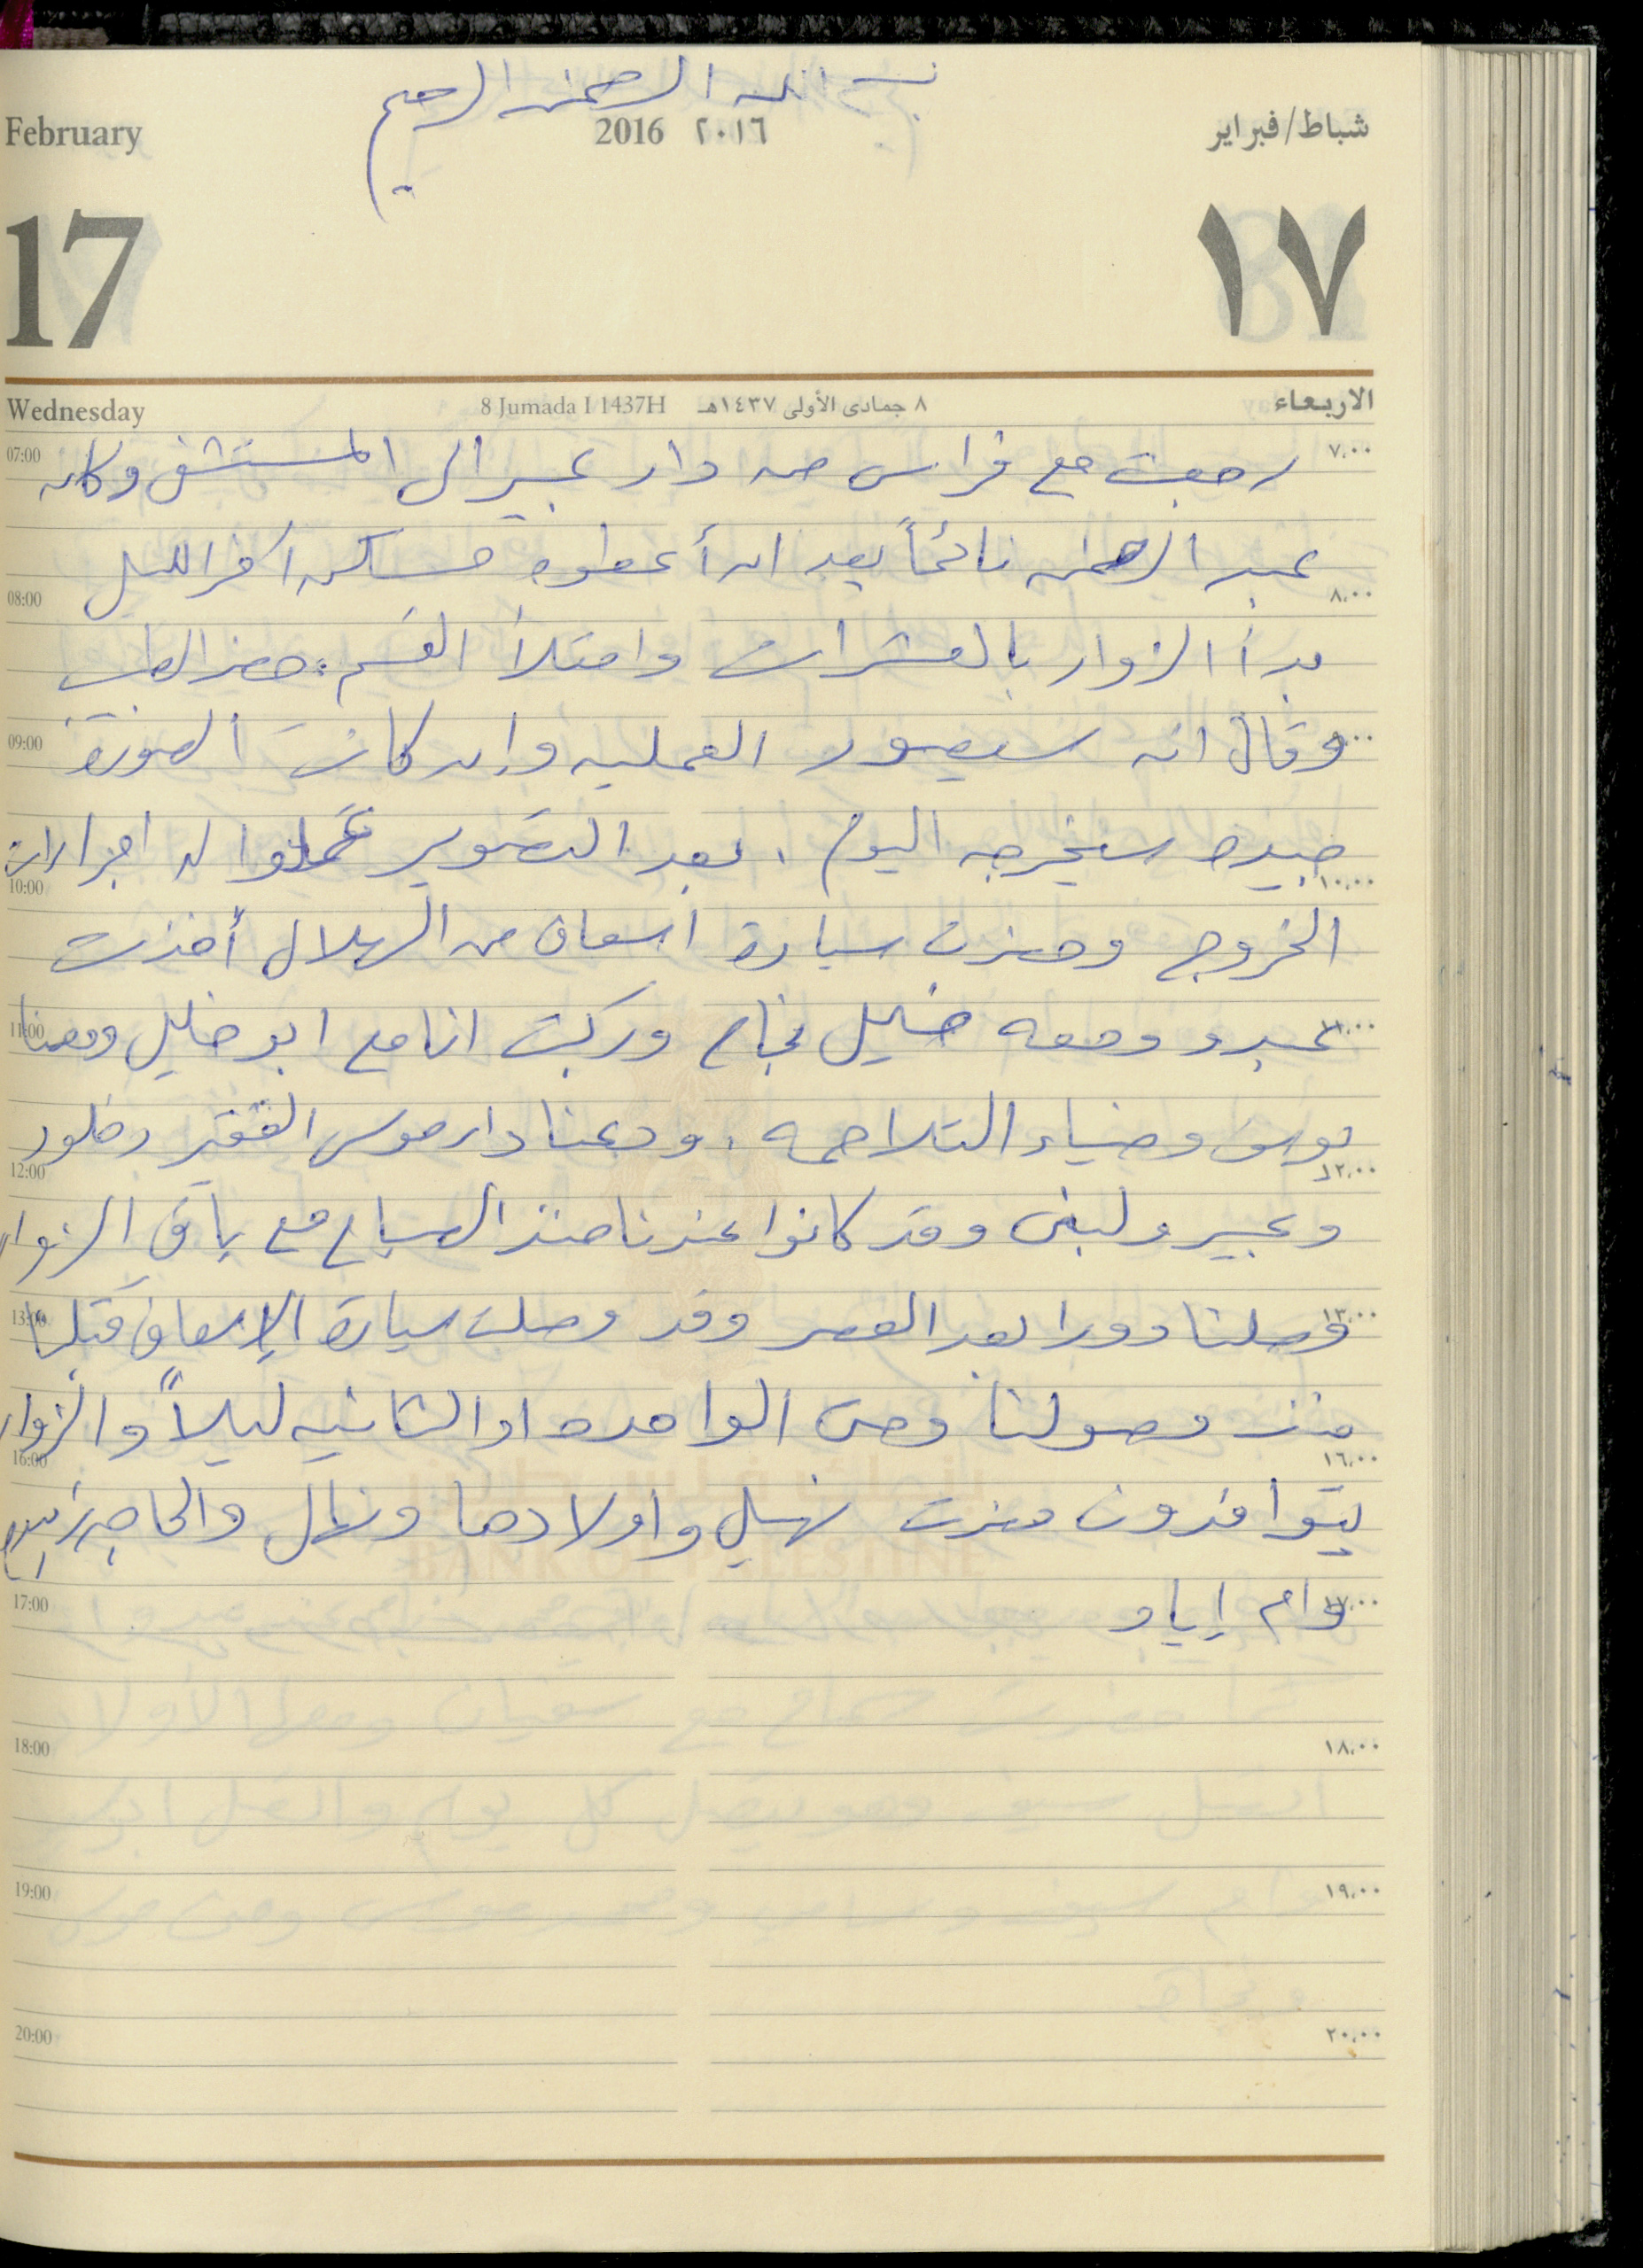 بسم الله الرحمن الرحيم
February 2016 ٢٠١٦ شباط/فبراير
17 ١٧
Wednesday 8 Jumada I 1437H ٨ جمادى الأولى ١٤٣٧هـ الاربعاء
07:00 رجعت مع فراس من دار عبير الى المستشفى وكان ٧،٠٠
عبد الرحمن نائماً بعد ان أعطوه مسكن آخر الليل
08:00 ٨،٠٠
بدأ الزوار بالعشرات وامتلأ القسم. حضر الطبيب
09:00 وقال انه سيصور العملية وإن كانت الصورة
جيده سيخرجه اليوم. بعد التصوير عملوا له اجراءات
10:00 ١٠،٠٠
الخروج وحضرت سيارة اسعاف من الهلال أخذت
11:00 عبد و ومعه خليل نجاح وركبت انا مع ابو خليل ومعنا
يوسف وضياء التلاحمه. ودعنا دار موسى الفقير وخلود
12:00 ١٢،٠٠
وعبير ولبنى وقد كانوا عندنا منذ الصباح مع باقي الزوار
13:00 وصلنا دورا بعد العصر وقد وصلت سيارة الإسعاف قبلنا ١٣،٠٠
منذ وصولنا وحتى الواحده او الثانيه ليلاً والزوار
16:00 ١٦،٠٠
يتوافدون حضرت نهيل واولادها ونهال والحاجه
17:00 وام إياد
18:00 ١٨،٠٠
19:00 ١٩،٠٠
20:00 ٢٠،٠٠
بنك فلسطين
BANK OF PALESTINE